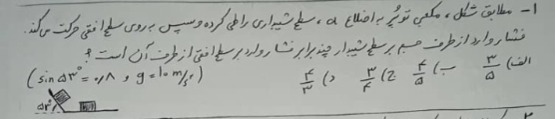 ۱- مطابق شکل، مکعبی توپُر به اضلاع a، سطح شیبداری را طی کرده و سپس به روی سطح افقی حرکت می‌کند.
فشار وارد از طرف جسم بر سطح شیبدار چند برابر فشار وارد بر سطح افقی از طرف آن است؟
الف) ۳/۵ ب) ۴/۵ ج) ۳/۴ د) ۴/۳ (sin ۵۳° = ۰/۸ و g = ۱۰ m/s²)
۵۳°